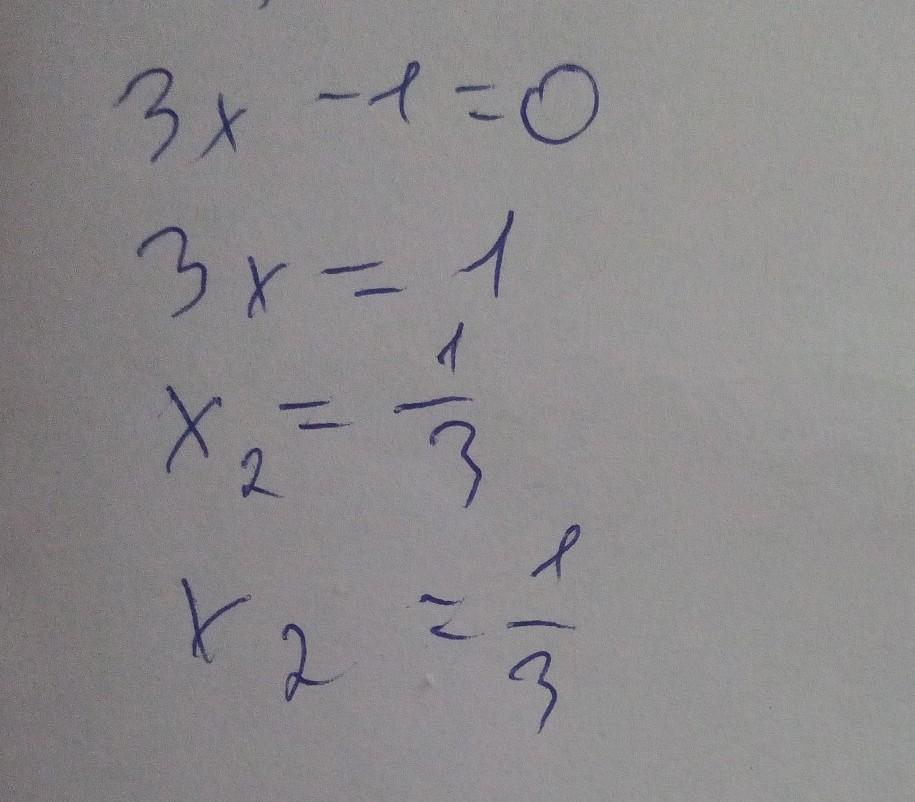 3x - 1 = 0
3x = 1
x₂ = 1/3
x₂ = 1/3